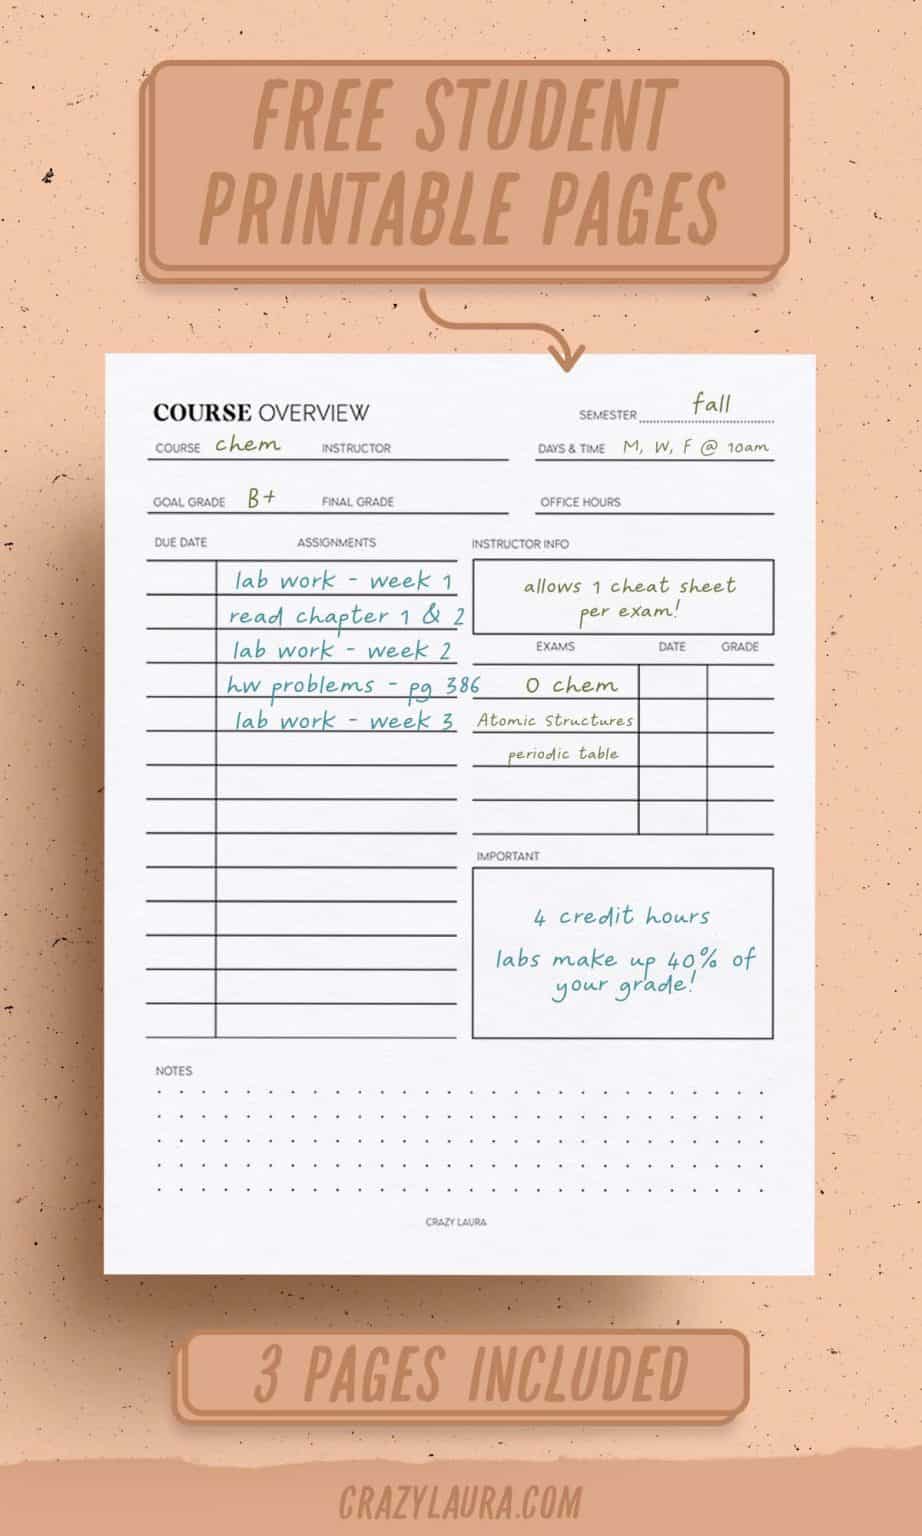 FREE STUDENT
PRINTABLE PAGES
COURSE OVERVIEW
SEMESTER fall
COURSE chem INSTRUCTOR
DAYS & TIME M, W, F @ 10am
GOAL GRADE B+ FINAL GRADE
OFFICE HOURS
DUE DATE ASSIGNMENTS
lab work - week 1
read chapter 1 & 2
lab work - week 2
hw problems - pg 386
lab work - week 3
INSTRUCTOR INFO
allows 1 cheat sheet
per exam!
EXAMS DATE GRADE
O chem
Atomic Structures
periodic table
IMPORTANT
4 credit hours
labs make up 40% of
your grade!
NOTES
CRAZY LAURA
3 PAGES INCLUDED
CRAZYLAURA.COM